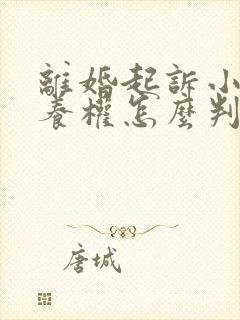 離婚起訴小
養權怎麼判
唐城